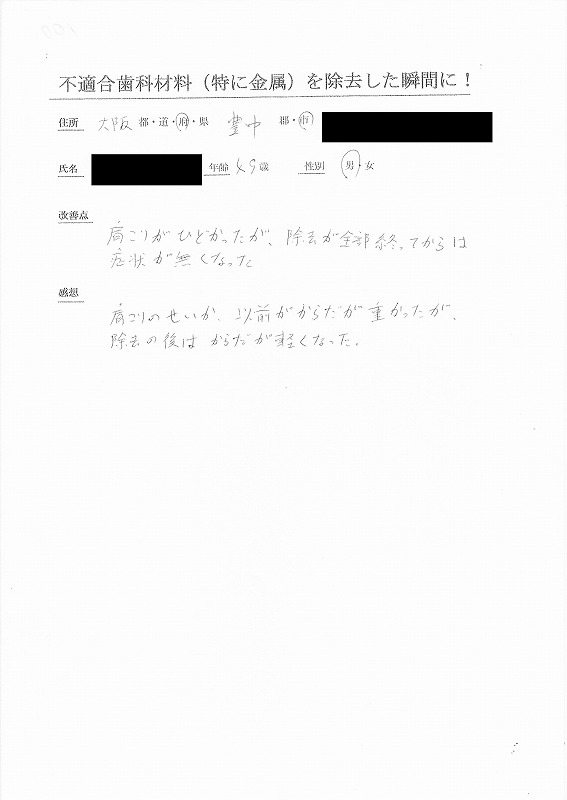 不適合歯科材料（特に金属）を除去した瞬間に！
住所 大阪 都・道・府・県 豊中 郡・市
氏名 年齢 49歳 性別 男・女
改善点
肩こりがひどかったが、除去が全部終ってからは
症状が無くなった
感想
肩こりのせいか、以前がからだが重かったが、
除去の後は からだが軽くなった。